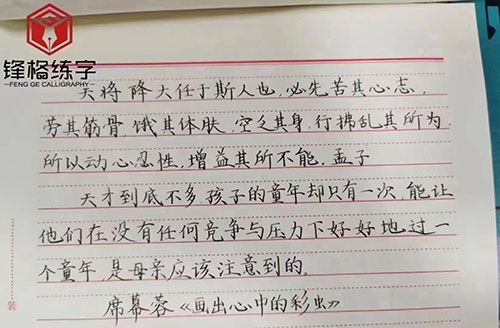 锋格练字
FENG GE CALLIGRAPHY
天将降大任于斯人也,必先苦其心志,
劳其筋骨 饿其体肤,空乏其身,行拂乱其所为,
所以动心忍性,增益其所不能,孟子
天才到底不多,孩子的童年却只有一次,能让
他们在没有任何竞争与压力下好好地过一
个童年,是母亲应该注意到的。
席慕蓉《画出心中的彩虫》
装